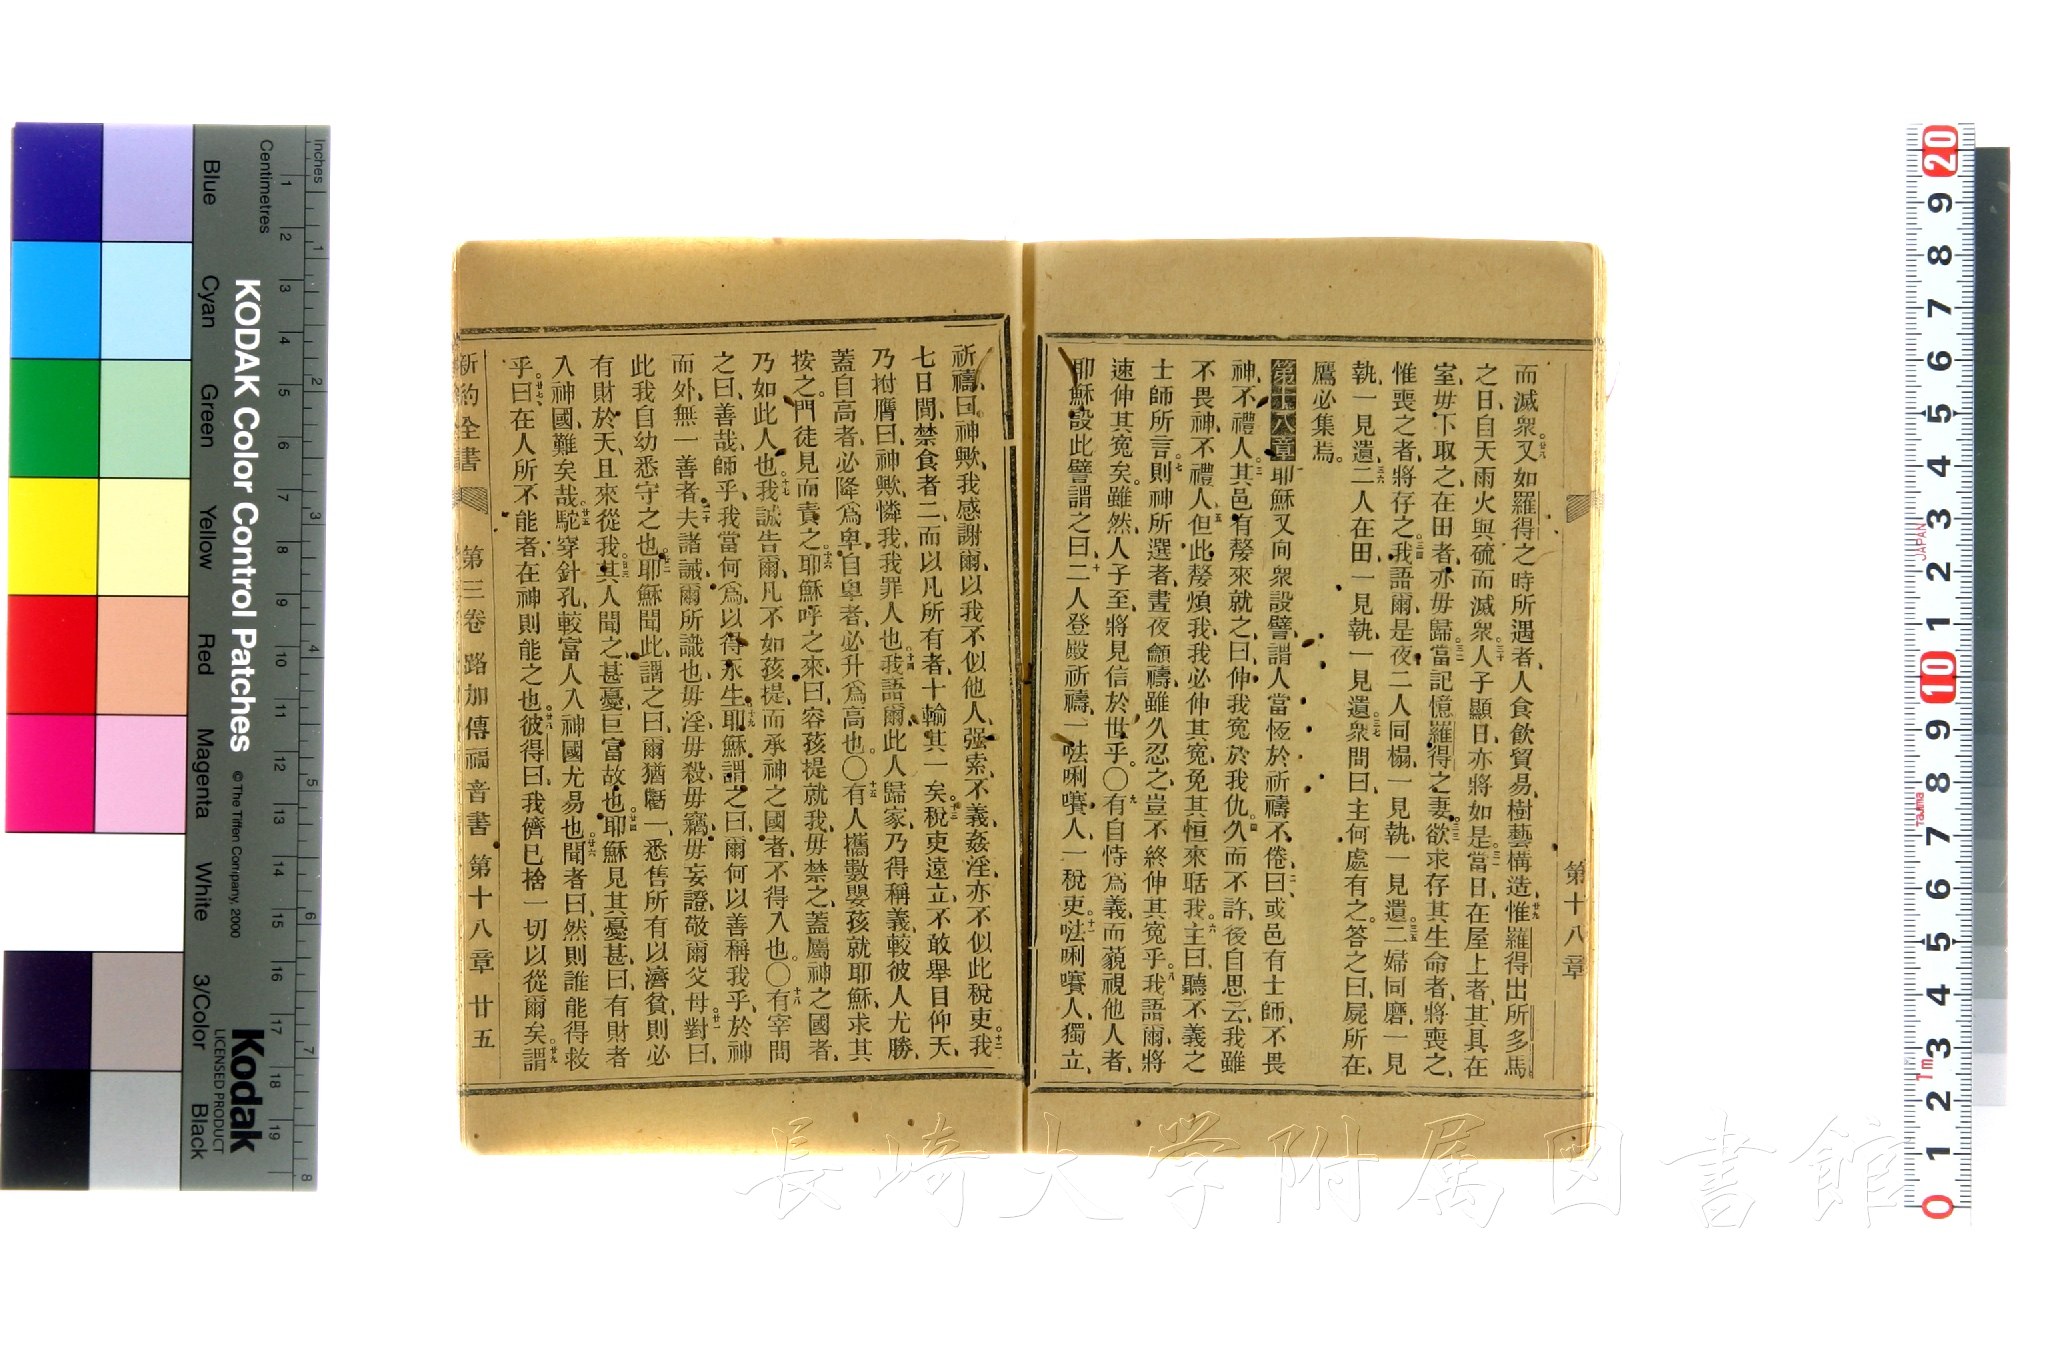 第十八章
而滅衆、又如羅得之時所遇者、人食飲貿易、樹藝構造、惟羅得出所多馬
之日、自天雨火與硫而滅衆、人子顯日、亦將如是、當日、在屋上者、其具在
室、毋下取之、在田者、亦毋歸、當記憶羅得之妻、欲求存其生命者、將喪之、
惟喪之者、將存之、我語爾、是夜二人同榻、一見執、一見遺、二婦同磨、一見
執、一見遺、二人在田、一見執、一見遺、衆問曰、主何處有之、答之曰、屍所在、
鷹必集焉。
第十八章耶穌又向衆設譬、謂人當恆於祈禱不倦、曰、或邑有士師、不畏
神、不禮人、其邑有嫠來就之、曰、伸我寃於我仇、久而不許、後自思云、我雖
不畏神、不禮人、但此嫠煩我、我必伸其寃、免其恒來聒我、主曰、聽不義之
士師所言、則神所選者、晝夜籲禱、雖久忍之、豈不終伸其寃乎、我語爾、將
速伸其寃矣。雖然、人子至、將見信於世乎。〇有自恃爲義、而藐視他人者、
耶穌設此譬謂之曰、二人登殿祈禱、一𠵽唎賽人、一稅吏、𠵽唎賽人、獨立、
祈禱曰、神歟、我感謝爾、以我不似他人、强索、不義、姦淫、亦不似此稅吏、我
七日間、禁食者二、而以凡所有者、十輸其一矣、稅吏遠立、不敢舉目仰天、
乃拊膺曰、神歟、憐我、我罪人也、我語爾、此人歸家、乃得稱義、較彼人尤勝、
蓋自高者、必降爲卑、自卑者、必升爲高也。〇有人攜數嬰孩就耶穌、求其
按之。門徒見而責之、耶穌呼之來、曰、容孩提就我、毋禁之、蓋屬神之國者、
乃如此人也、我誠告爾、凡不如孩提、而承神之國者、不得入也。〇有宰問
之曰、善哉師乎、我當何爲、以得永生、耶穌謂之曰、爾何以善稱我乎、於神
而外、無一善者、夫諸誡爾所識也、毋淫、毋殺、毋竊、毋妄證、敬爾父母、對曰、
此我自幼悉守之也、耶穌聞此、謂之曰、爾猶虧一、悉售所有以濟貧、則必
有財於天、且來從我、其人聞之、甚憂、巨富故也、耶穌見其憂甚、曰、有財者
入神國、難矣哉、駝穿針孔、較富人入神國尤易也、聞者曰、然則誰能得救
乎、曰、在人所不能者、在神則能之也、彼得曰、我儕已捨一切以從爾矣、謂
新約全書 第三卷 路加傳福音書 第十八章 廿五
Inches
Centimetres
KODAK Color Control Patches
© The Tiffen Company, 2000
Kodak
LICENSED PRODUCT
Blue Cyan Green Yellow Red Magenta White 3/Color Black
長崎大学附属図書館